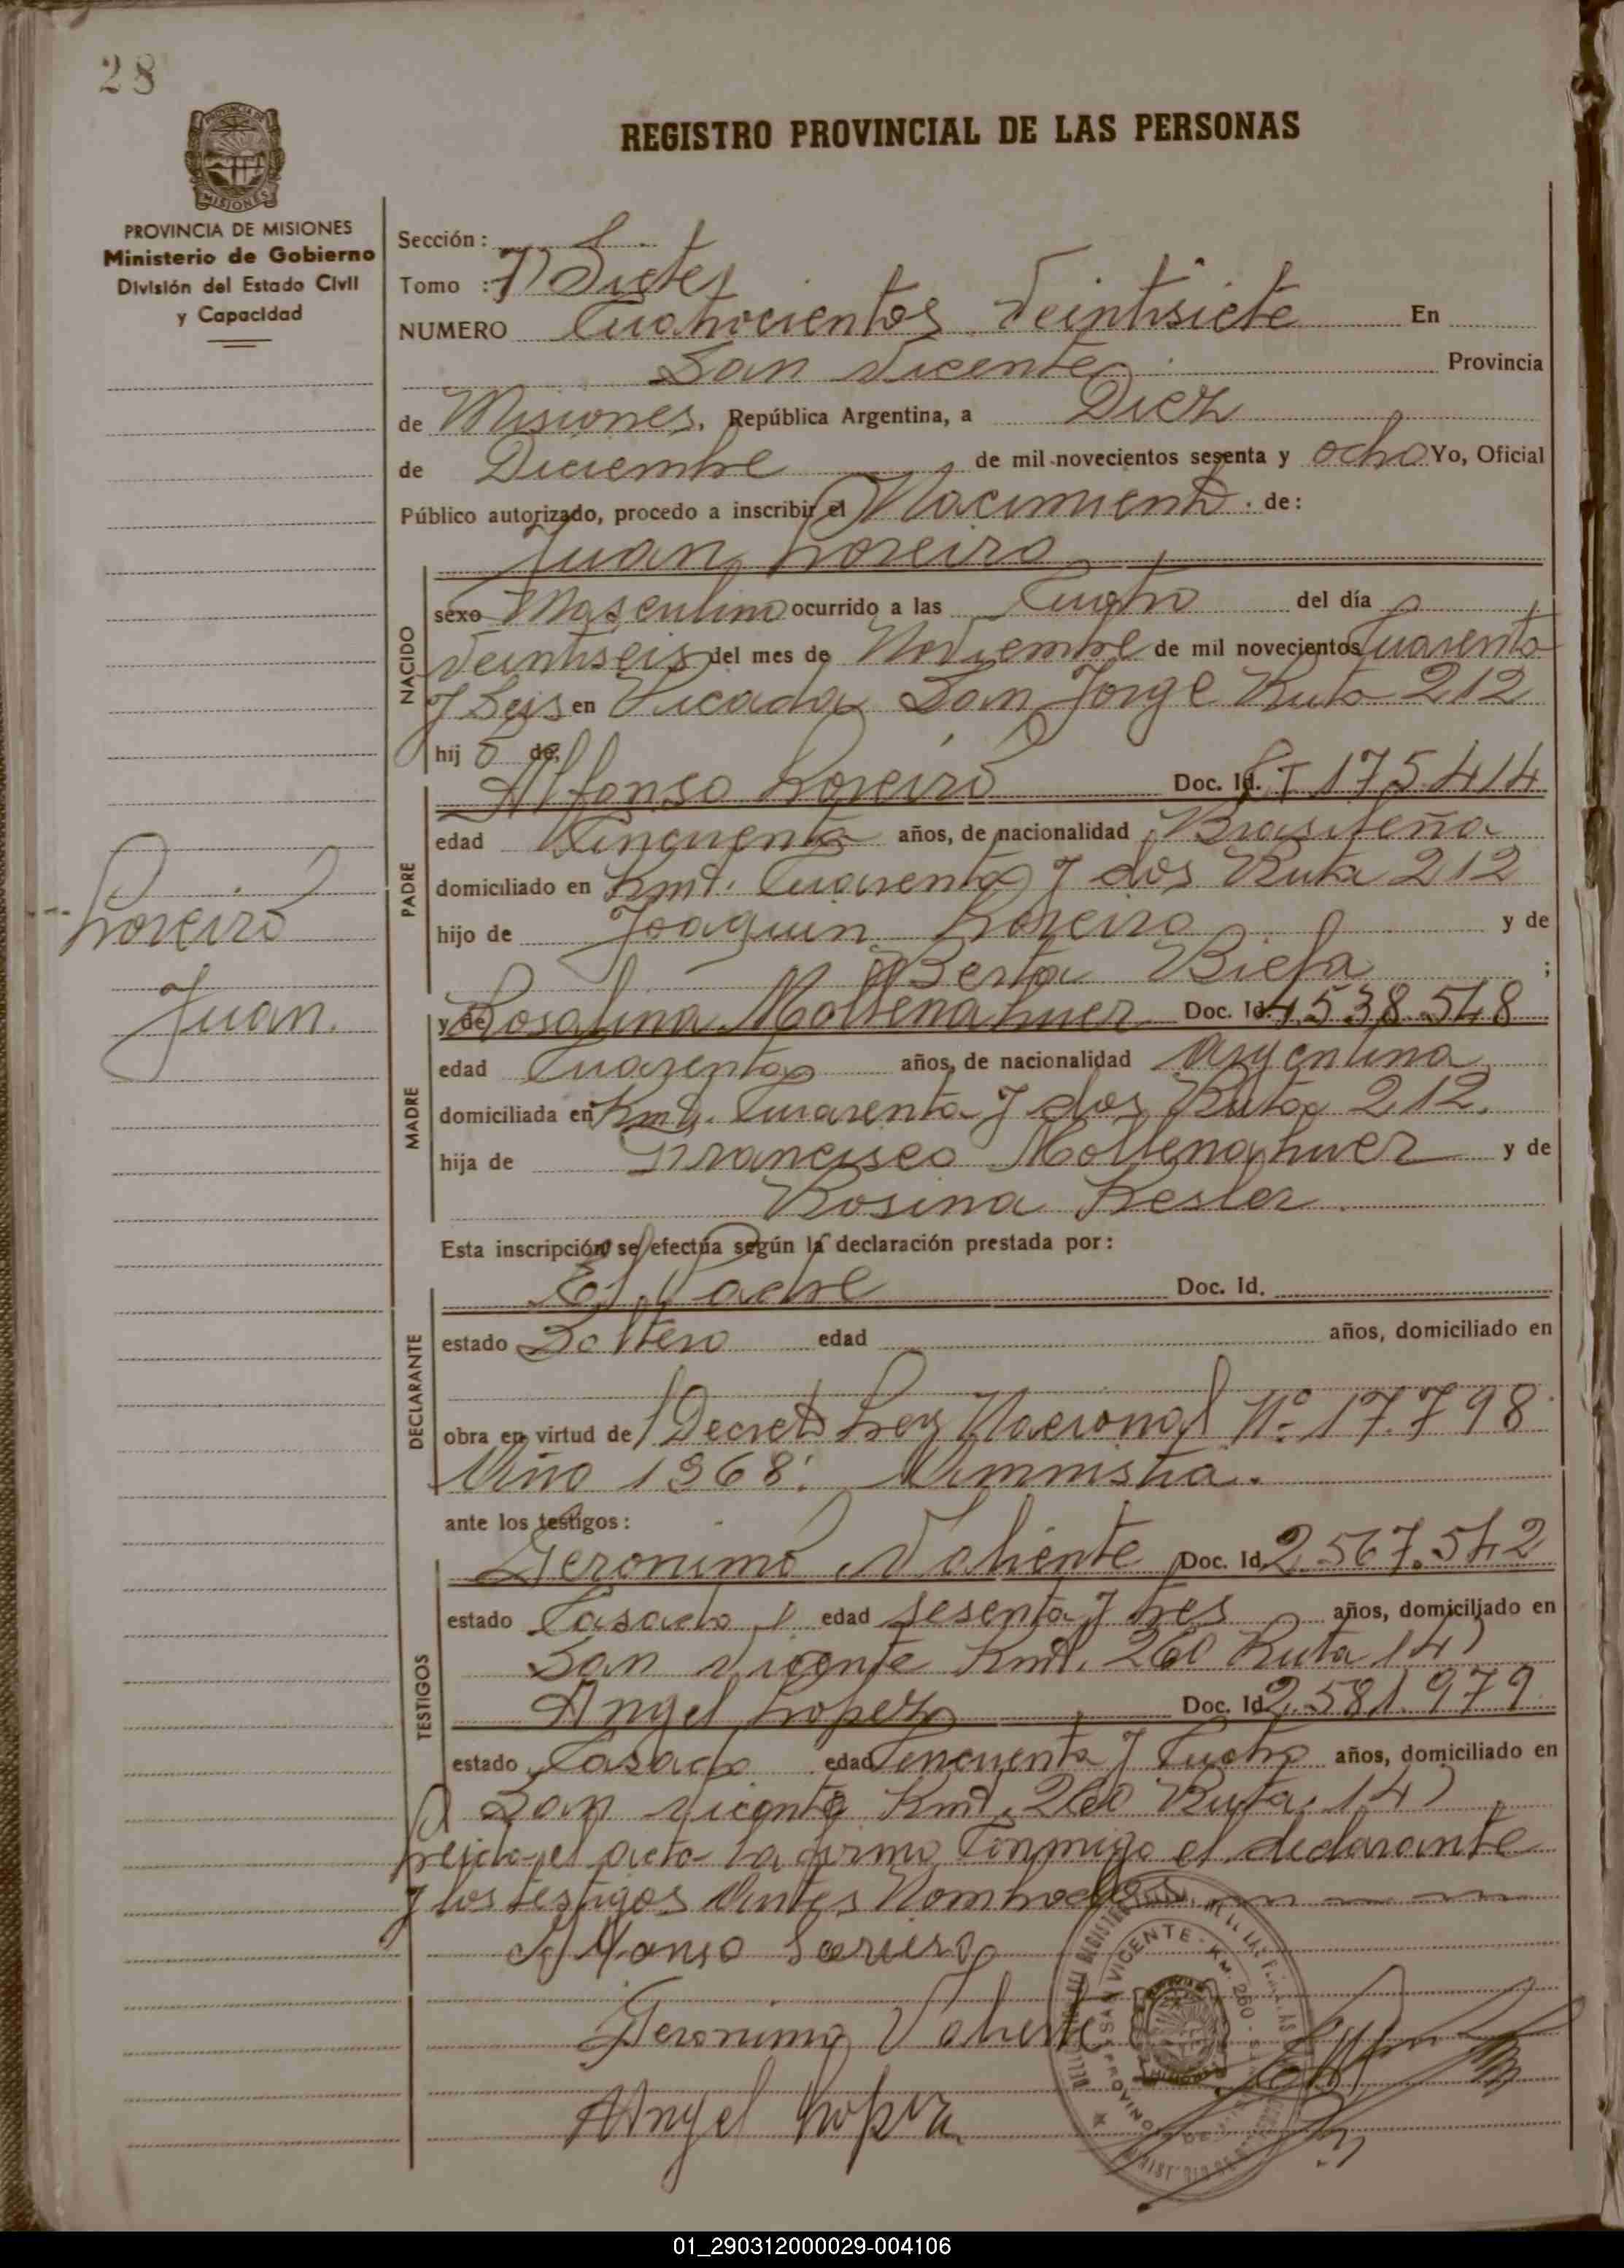 28
REGISTRO PROVINCIAL DE LAS PERSONAS
PROVINCIA DE MISIONES
Ministerio de Gobierno
División del Estado Civil
y Capacidad
Sección:
Tomo :
NUMERO Cuatrocientos Veintisiete En
San Vicente Provincia
de Misiones, República Argentina, a Diez
de Diciembre de mil novecientos sesenta y ocho Yo, Oficial
Público autorizado, procedo a inscribir el Nacimiento de:
Juan Loreiro
NACIDO
sexo Masculino ocurrido a las Cuatro del día
Veintiseis del mes de Noviembre de mil novecientos Cuarenta
y Seis en Picada San Jorge Ruta 212
hij o de
PADRE
Alfonso Loreiro Doc. Id. 175414
edad Cincuenta años, de nacionalidad Brasileña
domiciliado en Kmt. Cuarenta y dos Ruta 212
hijo de Joaquin Loreiro y de
Berta ;
Loreiro
Juan.
MADRE
y de Rosalina Doc. Id. 4.538.548
edad Cuarenta años, de nacionalidad Argentina
domiciliada en Kmt. Cuarenta y dos Ruta 212.
hija de Francisco y de
Rosina Kesler
Esta inscripción se efectúa según la declaración prestada por:
DECLARANTE
El Padre Doc. Id.
estado Soltero edad años, domiciliado en
obra en virtud de Decreto Ley Nacional Nº 17.798
Año 1968. Amnistia.
ante los testigos:
TESTIGOS
Geronimo Valiente Doc. Id. 2.567.542
estado Casado edad sesenta y tres años, domiciliado en
San Vicente Kmt. 260 Ruta 14
Angel Lopez Doc. Id. 2.581.979
estado Casado edad cincuenta y Cuatro años, domiciliado en
San Vicente Kmt. 260 Ruta 14
el acta la firma Conmigo el declarante
y los testigos Antes Nombrados.
Alfonso
Geronimo Valiente
Angel Lopez
SAN VICENTE - KM. 260
01_290312000029-004106